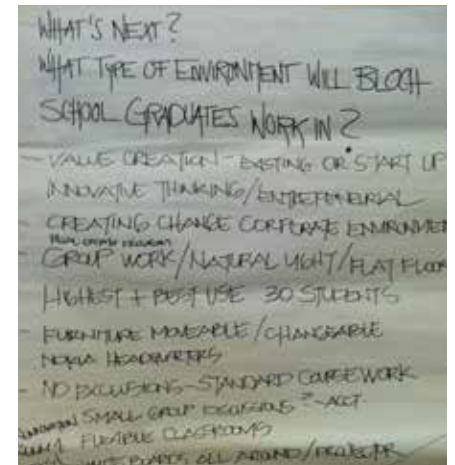 WHAT'S NEXT?
WHAT TYPE OF ENVIRONMENT WILL BLOCH
SCHOOL GRADUATES WORK IN?
- VALUE CREATION - EXISTING OR START UP
INNOVATIVE THINKING/ENTREPENEURIAL
- CREATING CHANGE CORPORATE ENVIRONMEN
- GROUP WORK/NATURAL LIGHT/FLAT FLOOR
HIGHEST + BEST USE 30 STUDENTS
- FURNITURE MOVEABLE/CHANGEABLE
NOKIA HEADQUARTERS
- NO EXCLUSIONS - STANDARD COURSEWORK
SMALL GROUP DISCUSSIONS ? - ACCT.
FLEXIBLE CLASSROOMS
WHITE BOARDS ALL AROUND/PROJECTOR